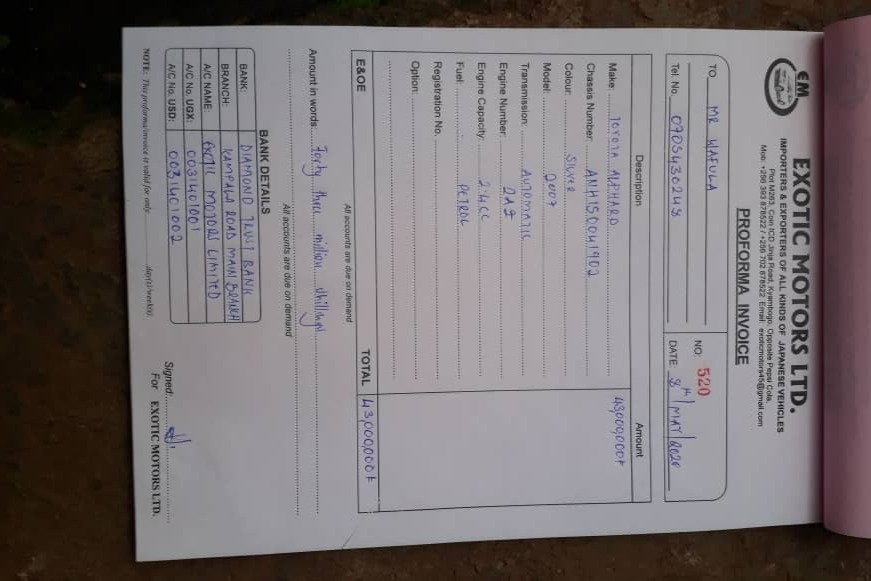 EM
Exotic Motors Ltd.
EXOTIC MOTORS LTD.
IMPORTERS & EXPORTERS OF ALL KINDS OF JAPANESE VEHICLES
Plot M283, Coin ICD Jinja Road, Kyambogo, Opposite Pepsi Cola,
Mob: +256 393 878522 / +256 702 878522 Email: exoticmotors45@gmail.com
PROFORMA INVOICE
TO MR WAFULA
Tel. No. 0705430248
NO: 520
DATE: 8TH/MAY/2020
Description Amount
Make: TOYOTA ALPHARD
Chassis Number: ANH150041902
Colour: SILVER
Model: 2007
Transmission: AUTOMATIC
Engine Number: 2AZ
Engine Capacity: 2.4CC
Fuel: PETROL
Registration No.
Option:
E&OE TOTAL 43,000,000/=
All accounts are due on demand
Amount in words: Forty three million shillings
All accounts are due on demand
BANK DETAILS
BANK: DIAMOND TRUST BANK
BRANCH: KAMPALA ROAD MAIN BRANCH
A/C NAME: EXOTIC MOTORS LIMITED
A/C No. UGX: 0031401001
A/C No. USD: 0031401002
Signed:
For EXOTIC MOTORS LTD.
NOTE: This proforma invoice is valid for only day(s)/week(s).